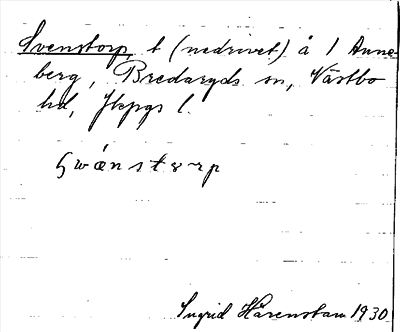 Svenstorp, t (nedrivet) å 1 Anne-
berg, Bredaryds sn, Västbo
hd, Jkpgs l.
swänstorp
Ingrid Härenstam 1930